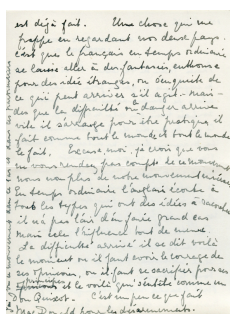 est déjà fait. Une chose qui me
frappe en regardant vos deux pays
c'est que le français en temps ordinaire
se laisse aller à des fantaisies,
pour des idées étranges, ou s'enquiete de
ce qui peut arriver s'il agit. mais
dès que les difficultés, le danger arrive
vite il s'arrange pour être pratique, il
fait comme tout le monde et tout le monde
le fait. Excuse moi, je crois que vous
ne vous rendez pas compte de ce mouvement
nous non plus de notre mouvement
En temps ordinaire l'anglais écoute à
tous les types qui ont des idées à raconter
il n'a pas l'air d'en faire grand cas
mais cela l'influence tout de même.
La difficulté arrivée il se dit voilà
le moment où il faut avoir le courage de
ses opinions, ou il faut se sacrifier pour ses
principes
opinions et le voilà qui s'entête comme un
Don Quixot. C'est un peu ce que fait
Mac Donald pour les désarmements.